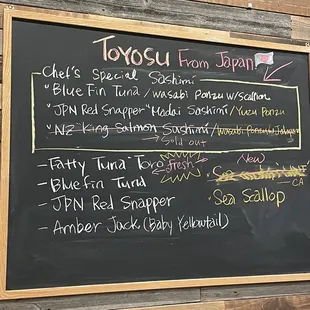 Toyosu From Japan
Chef's Special Sashimi
"Blue Fin Tuna / Wasabi Ponzu w/Scallion
"JPN Red Snapper "Madai Sashimi / Yuzu Ponzu
"NZ King Salmon Sashimi / Wasabi Ponzu
→ Sold out
- Fatty Tuna "Toro" fresh
- Bluefin Tuna
- JPN Red Snapper
- Amber Jack (Baby Yellowtail)
New
CA
Sea Scallop